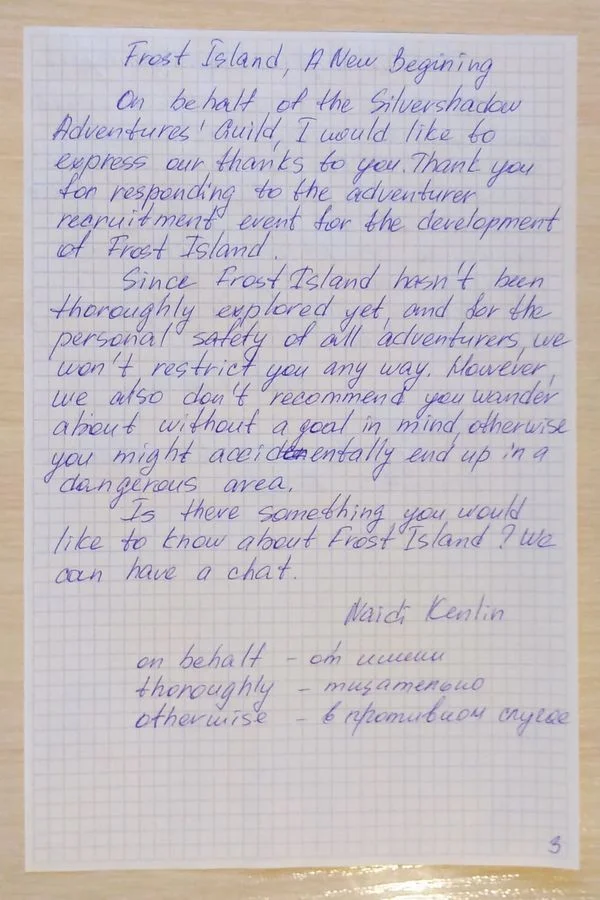 Frost Island, A New Begining
On behalf of the Silvershadow
Adventures' Guild, I would like to
express our thanks to you. Thank you
for responding to the adventurer
recruitment event for the development
of Frost Island.
Since Frost Island hasn't been
thoroughly explored yet, and for the
personal safety of all adventurers, we
won't restrict you any way. However,
we also don't recommend you wander
about without a goal in mind, otherwise
you might accidentally end up in a
dangerous area.
Is there something you would
like to know about Frost Island? We
can have a chat.
Naidi Kenlin
on behalf - от имени
thoroughly - тщательно
otherwise - в противном случае
3